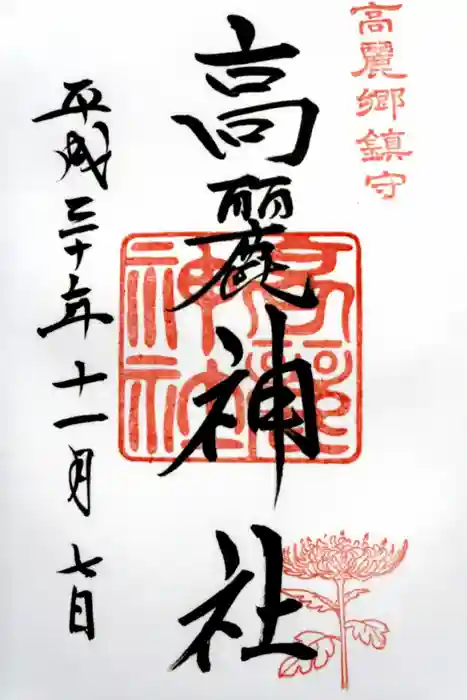 高麗郷鎮守
高麗神社
高麗神社
平成三十年十一月七日